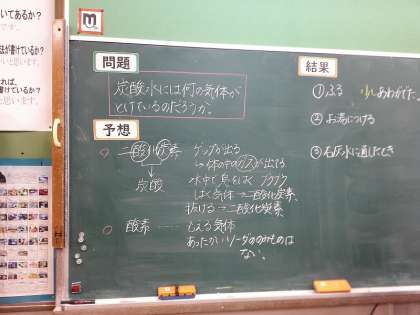 いてあるか?
です。
法が書けているか?
と思います。
れば、
書けているか?
と思います。
m
問題
炭酸水には何の気体が
とけているのだろうか。
予想
二酸化炭素
炭酸
ゲップが出る
体の中のガスが出てる
水中で息をはく ブクブク
はく気体→二酸化炭素
抜ける→二酸化炭素
酸素……
もえる気体
あったかいソーダののみものは
ない。
結果
①ふる 少しあわがでた
②お湯につける
③石灰水に通したとき